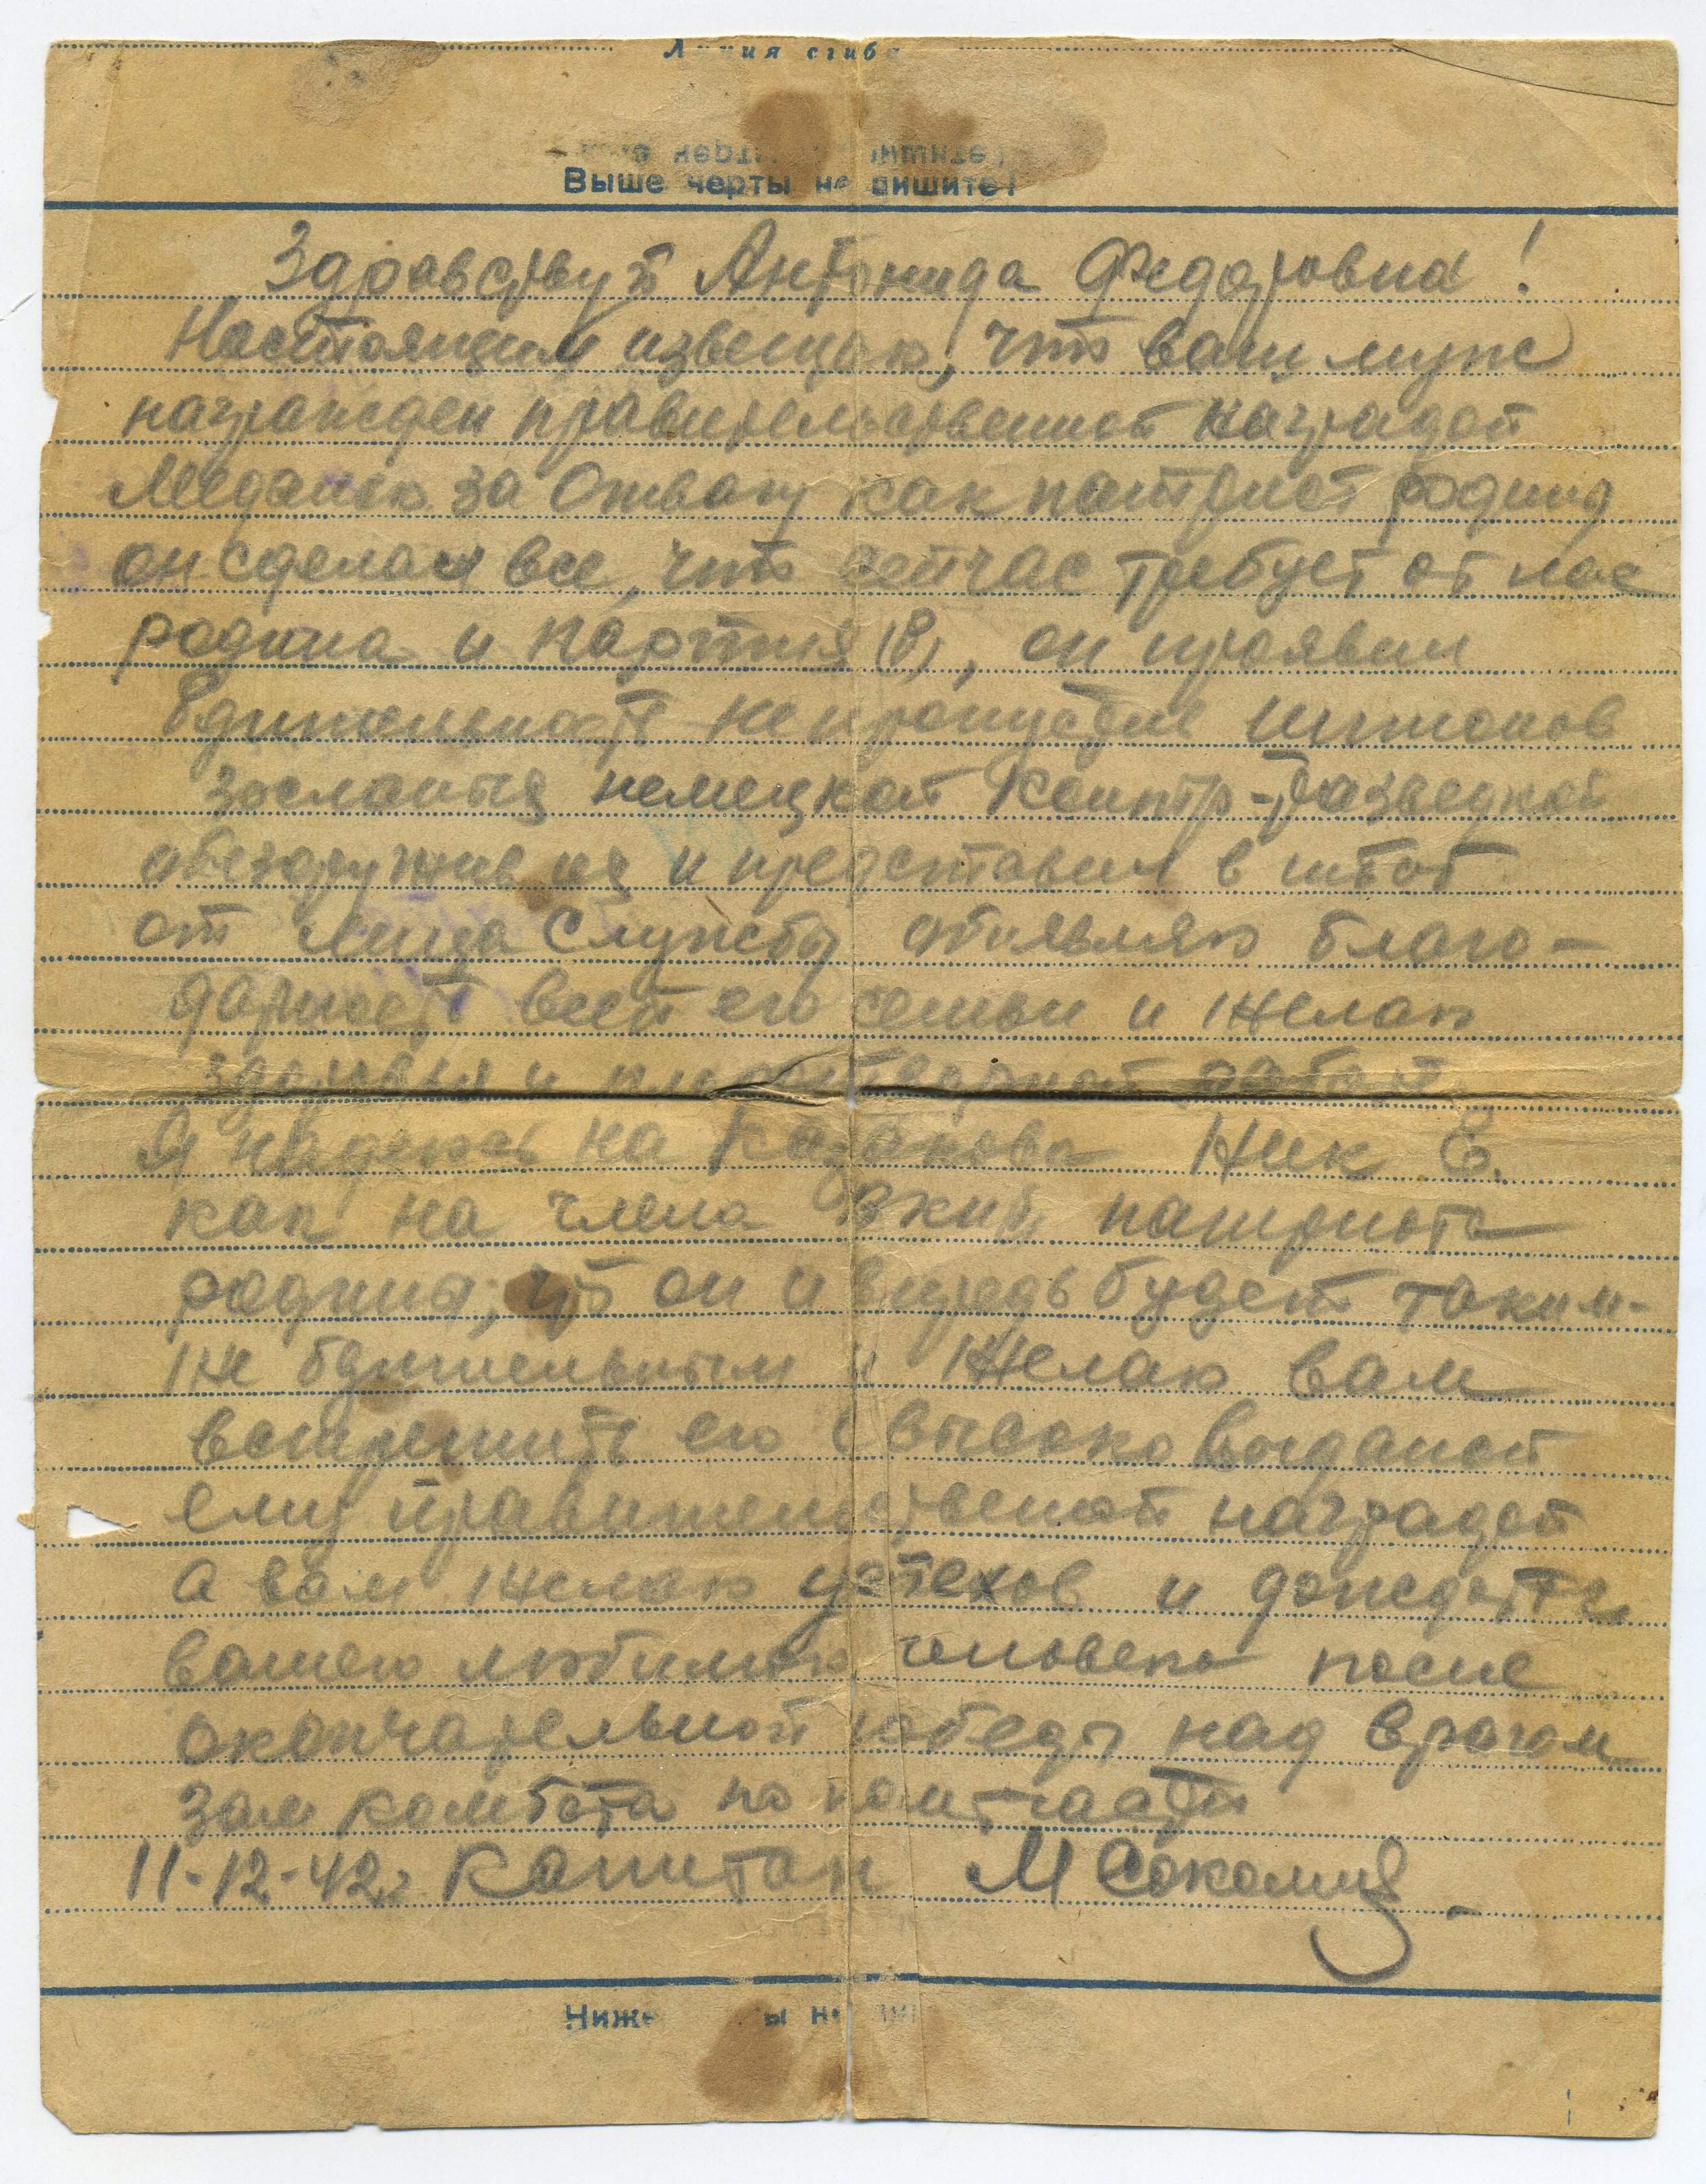 Линия сгиба
Выше черты не пишите!
Здравствуй Антонида Федоровна!
Настоящим извещаю, что ваш муж
награжден правительственной наградой
Медалью за Отвагу как патриот родины
он сделал все, что сейчас требует от нас
родина и партия (б), он проявил
бдительность не пропустил шпионов
засланых немецкой контр-разведкой
обезоружив их и представил в штаб
от лица службы обявляю благо-
дарность всей его семьи и желаю
здоровья и плодотворной работы
Я надеюсь на Казакова Ник Е.
как на члена ВКПб, патриота
родины, что он и впредь будет таким-
же бдительным и желаю вам
встретить его с высоко выданой
ему правительственой наградой
а вам желаю успехов и дождаться
вашего любимого человека после
окончательной победы над врагом
зам комбата по политчасти
11-12-42 г. Капитан М Соколин
Ниже ы не